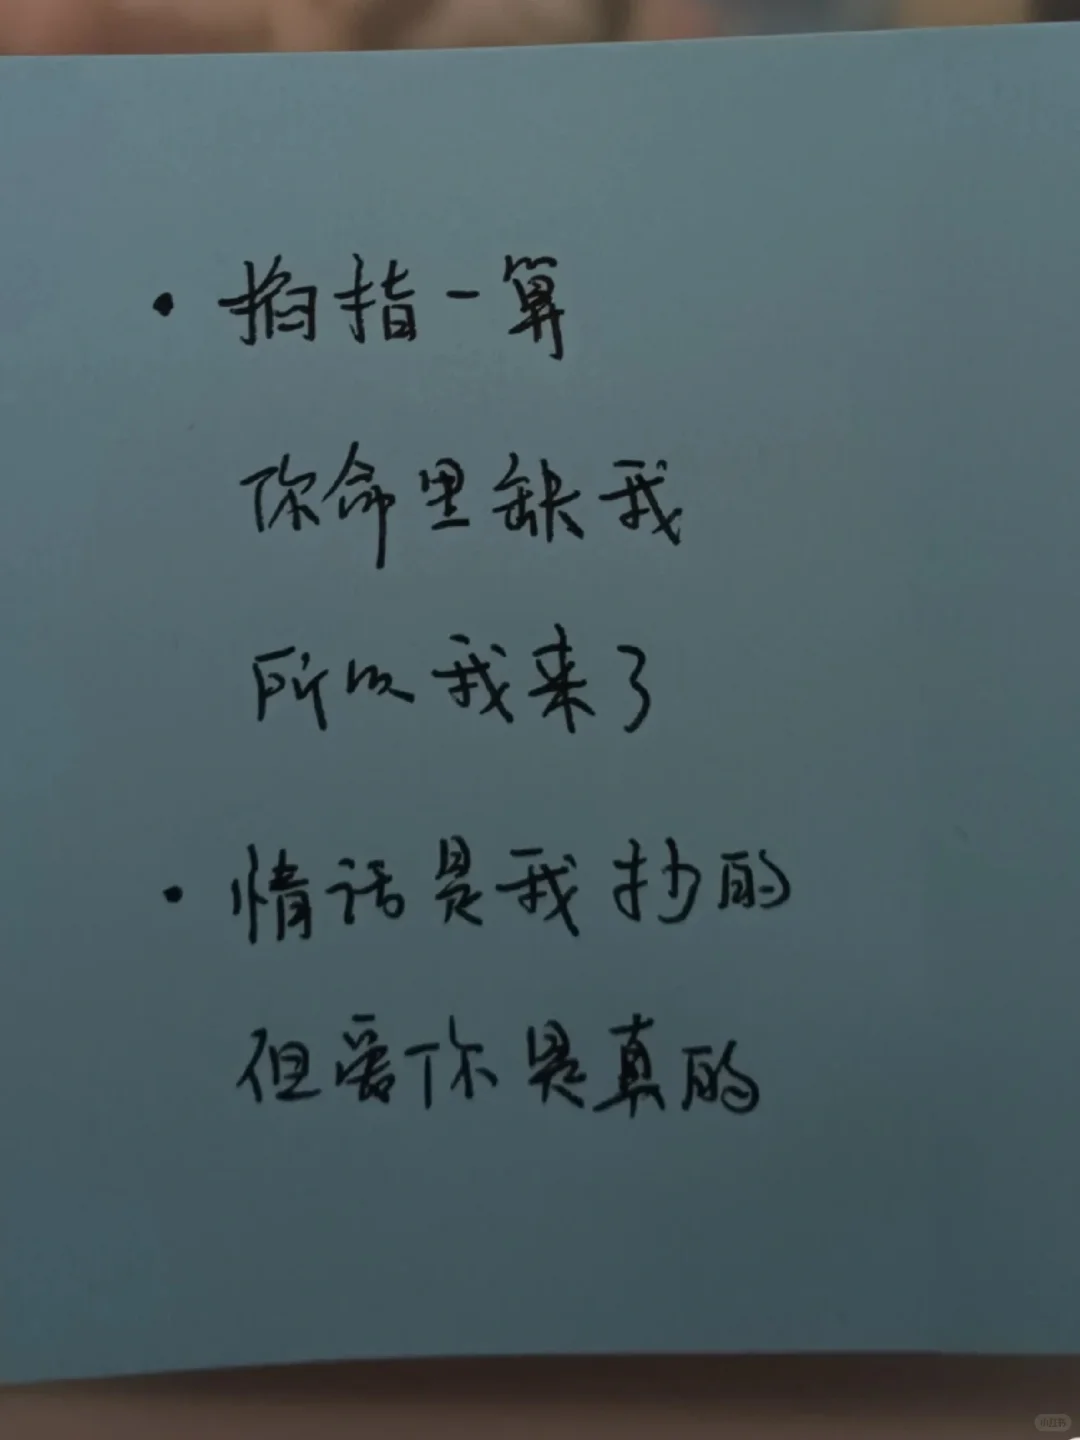 · 掐指一算
你命里缺我
所以我来了
· 情话是我抄的
但爱你是真的
小红书